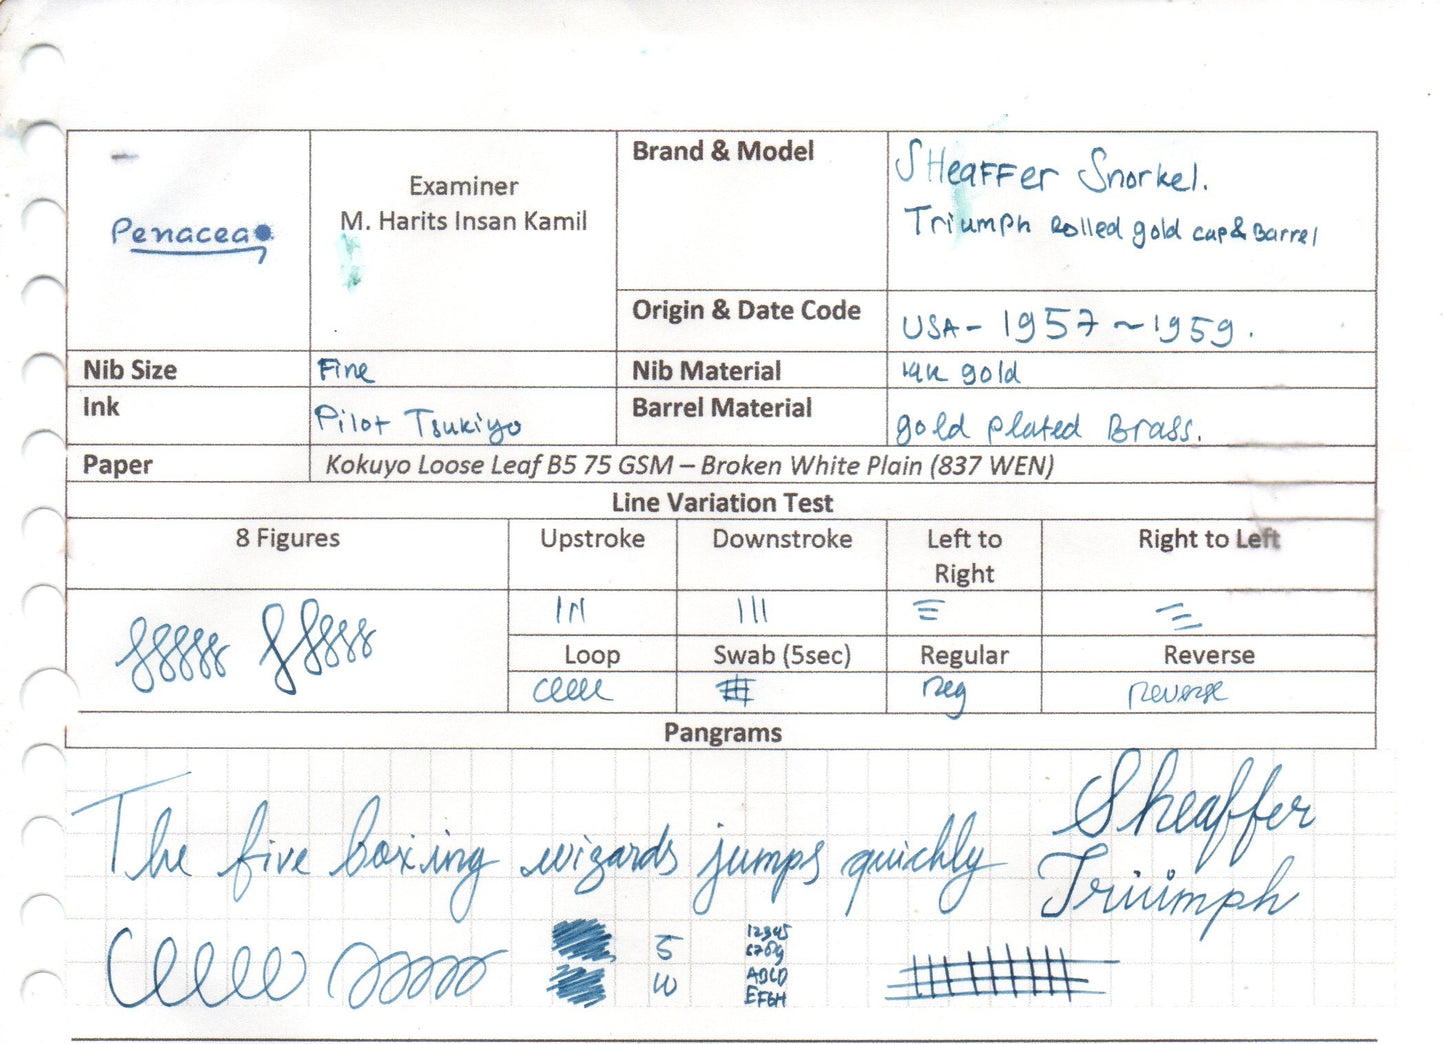 Penacea
Examiner
M. Harits Insan Kamil
Brand & Model
SHeaFFer Snorkel.
Triumph Rolled gold cap & Barrel
Origin & Date Code
USA - 1957 ~ 1959.
Nib Size
Fine
Nib Material
14K gold
Ink
Pilot Tsukiyo
Barrel Material
gold plated Brass.
Paper
Kokuyo Loose Leaf B5 75 GSM – Broken White Plain (837 WEN)
Line Variation Test
8 Figures
Upstroke
Downstroke
Left to
Right
Right to Left
Loop
Swab (5sec)
Regular
Reverse
reg
reverse
Pangrams
The five boxing wizards jumps quickly
Sheaffer
Triumph
5
10
12345
6789
ABCD
EFGH